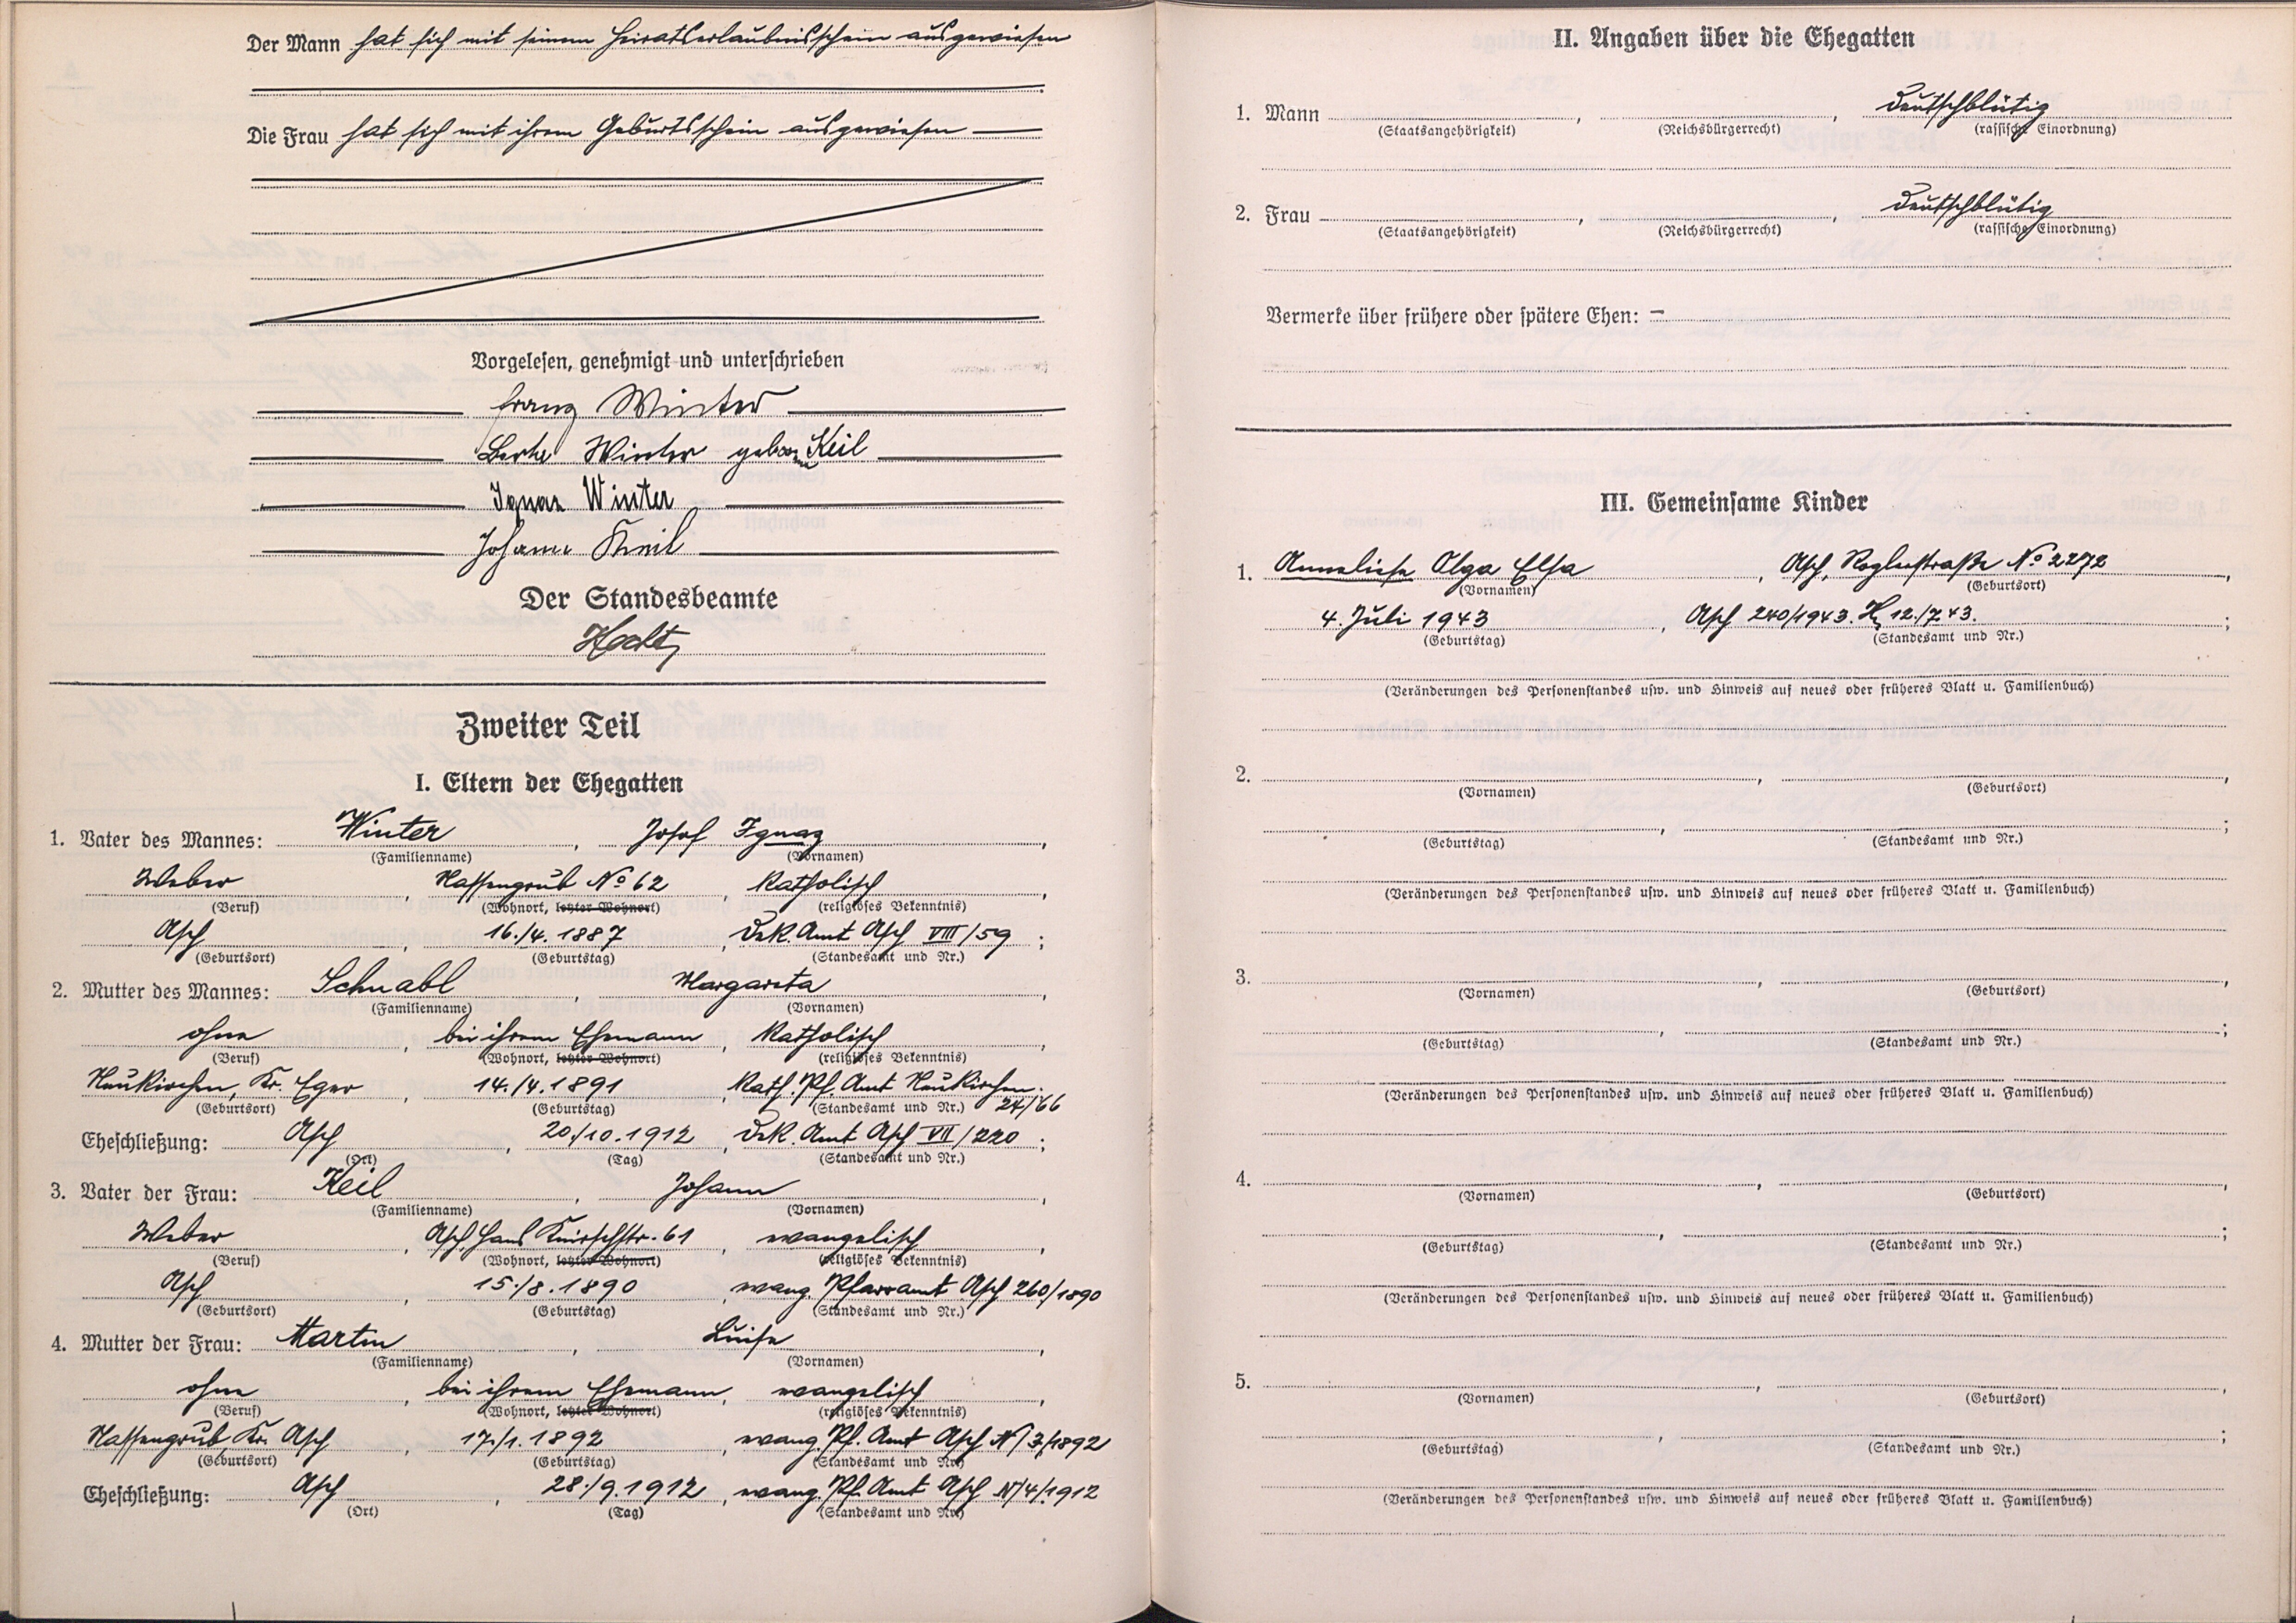 Der Mann hat sich mit seinem Heiratserlaubnisschein ausgewiesen
Die Frau hat sich mit ihrem Geburtsschein ausgewiesen
Vorgelesen, genehmigt und unterschrieben
Franz Winter
Berta Winter gebor. Keil
Ignaz Winter
Johann Keil
Der Standesbeamte
Zweiter Teil
I. Eltern der Ehegatten
1. Vater des Mannes: Winter, Josef Ignaz,
(Familienname) (Vornamen)
Weber, Nassengrub No 62, katholisch,
(Beruf) (Wohnort, letzter Wohnort) (religiöses Bekenntnis)
Asch, 16./4. 1887, Dek. Amt Asch VIII/59;
(Geburtsort) (Geburtstag) (Standesamt und Nr.)
2. Mutter des Mannes: Schnabl, Margareta,
(Familienname) (Vornamen)
ohne, bei ihrem Ehemann, katholisch,
(Beruf) (Wohnort, letzter Wohnort) (religiöses Bekenntnis)
Neukirchen, Kr. Eger, 14./4. 1891, Kath. Pf. Amt Neukirchen.
(Geburtsort) (Geburtstag) (Standesamt und Nr.) 24/66
Eheschließung: Asch, 20./10. 1912, Dek. Amt Asch VII/220;
(Ort) (Tag) (Standesamt und Nr.)
3. Vater der Frau: Keil, Johann,
(Familienname) (Vornamen)
Weber, Asch, Hans Knirschstr. 61, evangelisch,
(Beruf) (Wohnort, letzter Wohnort) (religiöses Bekenntnis)
Asch, 15./8. 1890, evang. Pfarramt Asch 260/1890
(Geburtsort) (Geburtstag) (Standesamt und Nr.)
4. Mutter der Frau: Martin, Luise,
(Familienname) (Vornamen)
ohne, bei ihrem Ehemann, evangelisch,
(Beruf) (Wohnort, letzter Wohnort) (religiöses Bekenntnis)
Nassengrub, Kr. Asch, 17./1. 1892, evang. Pf. Amt Asch N/3/1892
(Geburtsort) (Geburtstag) (Standesamt und Nr.)
Eheschließung: Asch, 28./9. 1912, evang. Pf. Amt Asch N/4/1912
(Ort) (Tag) (Standesamt und Nr.)
II. Angaben über die Ehegatten
1. Mann , , deutschblütig
(Staatsangehörigkeit) (Reichsbürgerrecht) (rassische Einordnung)
2. Frau , , deutschblütig
(Staatsangehörigkeit) (Reichsbürgerrecht) (rassische Einordnung)
Vermerke über frühere oder spätere Ehen: –
III. Gemeinsame Kinder
1. Anneliese Olga Elsa, Asch, Roglerstraße No 2272,
(Vornamen) (Geburtsort)
4. Juli 1943, Asch 240/1943. 12./7.43.;
(Geburtstag) (Standesamt und Nr.)
(Veränderungen des Personenstandes usw. und Hinweis auf neues oder früheres Blatt u. Familienbuch)
2. , ,
(Vornamen) (Geburtsort)
, ;
(Geburtstag) (Standesamt und Nr.)
(Veränderungen des Personenstandes usw. und Hinweis auf neues oder früheres Blatt u. Familienbuch)
3. , ,
(Vornamen) (Geburtsort)
, ;
(Geburtstag) (Standesamt und Nr.)
(Veränderungen des Personenstandes usw. und Hinweis auf neues oder früheres Blatt u. Familienbuch)
4. , ,
(Vornamen) (Geburtsort)
, ;
(Geburtstag) (Standesamt und Nr.)
(Veränderungen des Personenstandes usw. und Hinweis auf neues oder früheres Blatt u. Familienbuch)
5. , ,
(Vornamen) (Geburtsort)
, ;
(Geburtstag) (Standesamt und Nr.)
(Veränderungen des Personenstandes usw. und Hinweis auf neues oder früheres Blatt u. Familienbuch)